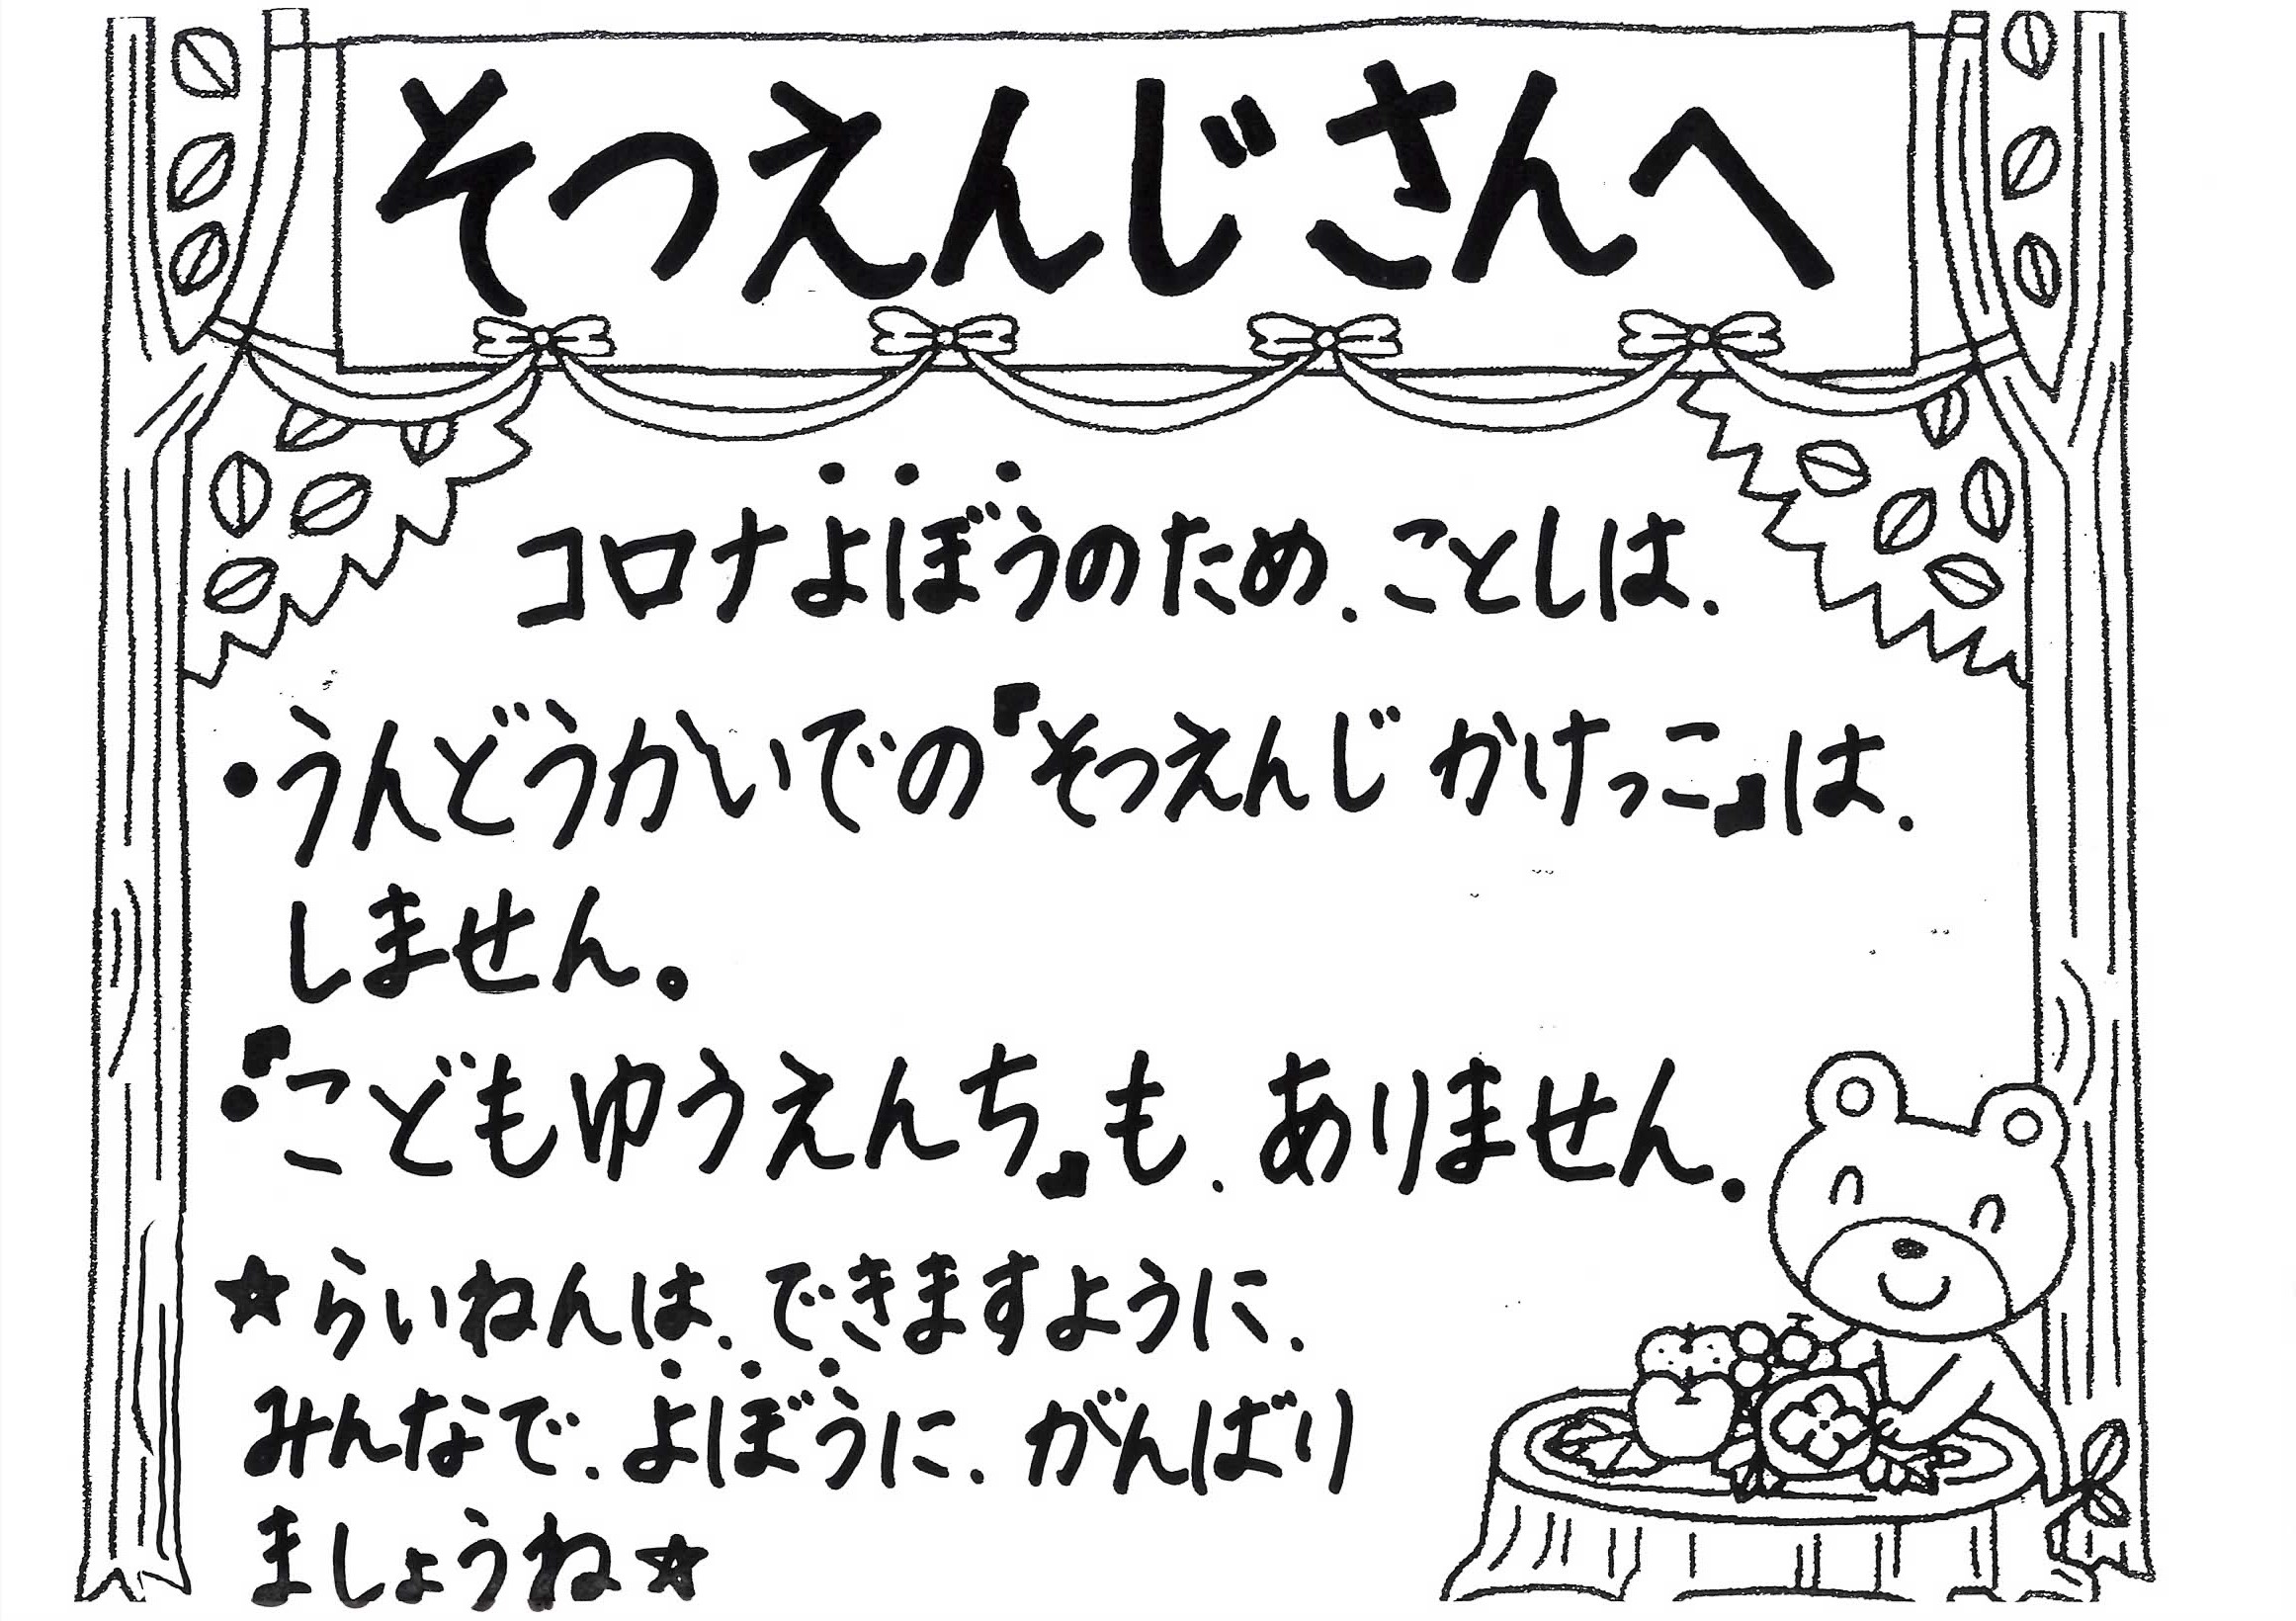 そつえんじさんへ
コロナよぼうのため、ことしは、
・うんどうかいでの『そつえんじかけっこ』は、
しません。
・『こどもゆうえんち』も、ありません。
★らいねんは、できますように、
みんなで、よぼうに、がんばり
ましょうね★